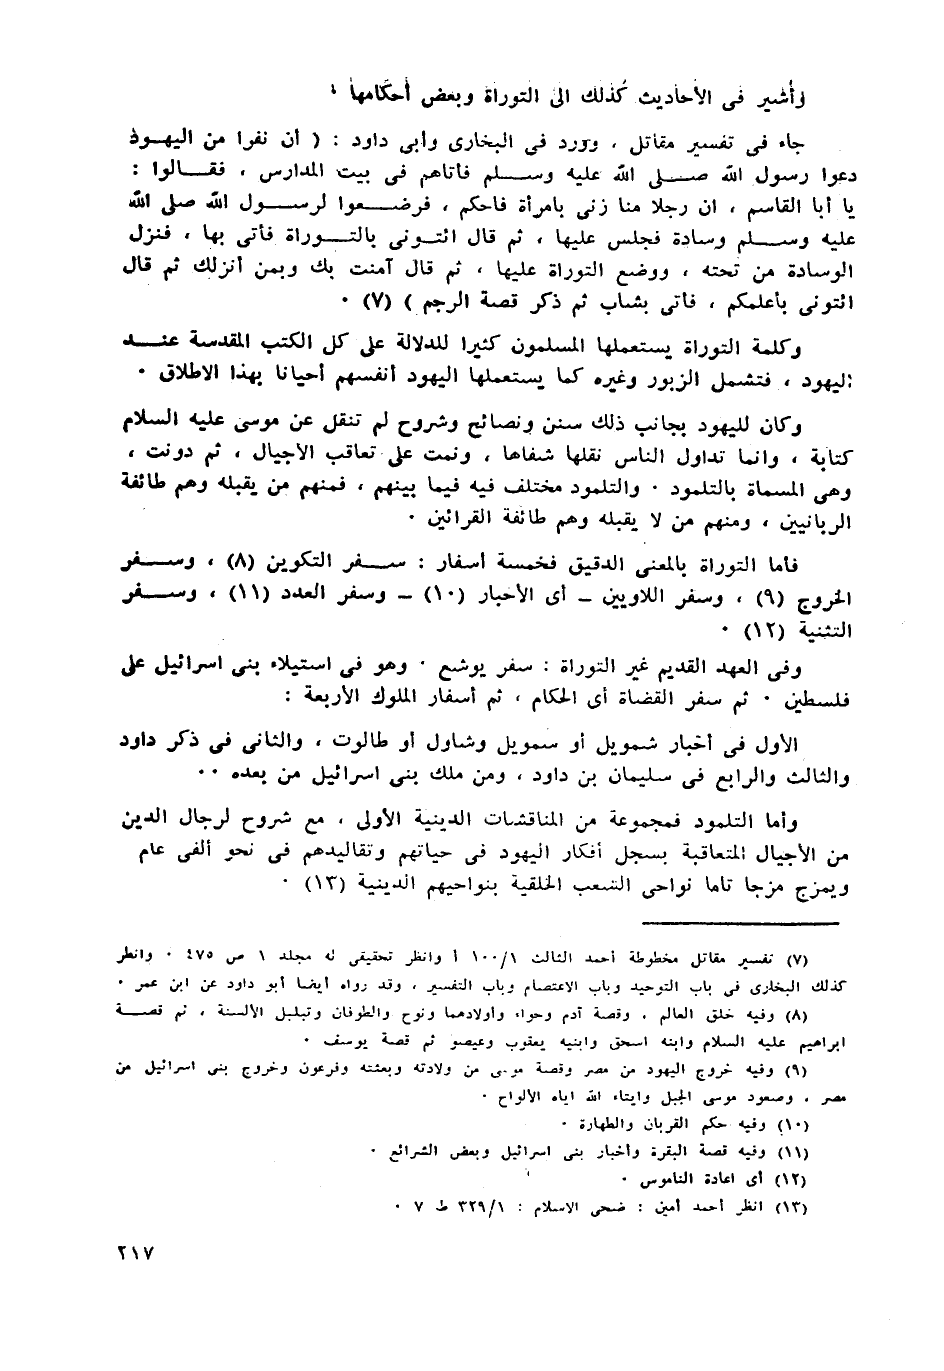 وأشير فى الأحاديث كذلك الى التوراة وبعض أحكامها :
جاء فى تفسير مقاتل ، وورد فى البخارى وأبى داود : ( أن نفرا من اليهود
دعوا رسول الله صلى الله عليه وسلم فأتاهم فى بيت المدارس ، فقالوا :
يا أبا القاسم ، ان رجلا منا زنى بامرأة فاحكم ، فوضعوا لرسول الله صلى الله
عليه وسلم وسادة فجلس عليها ، ثم قال ائتونى بالتوراة فأتى بها ، فنزل
الوسادة من تحته ، ووضع التوراة عليها ، ثم قال آمنت بك وبمن أنزلك ثم قال
ائتونى بأعلمكم ، فأتى بشاب ثم ذكر قصة الرجم ) (٧) ٠
وكلمة التوراة يستعملها المسلمون كثيرا للدلالة على كل الكتب المقدسة عند
اليهود ، فتشمل الزبور وغيره كما يستعملها اليهود أنفسهم أحيانا بهذا الاطلاق ٠
وكان لليهود بجانب ذلك سنن ونصائح وشروح لم تنقل عن موسى عليه السلام
كتابة ، وانما تداول الناس نقلها شفاها ، ونمت على تعاقب الأجيال ، ثم دونت ،
وهى المسماة بالتلمود ٠ والتلمود مختلف فيه فيما بينهم ، فمنهم من يقبله وهم طائفة
الربانيين ، ومنهم من لا يقبله وهم طائفة القرائين ٠
فأما التوراة بالمعنى الدقيق فخمسة أسفار : سفر التكوين (٨) ، وسفر
الخروج (٩) ، وسفر اللاويين ـ أى الأحبار (١٠) ـ وسفر العدد (١١) ، وسفر
التثنية (١٢) ٠
وفى العهد القديم غير التوراة : سفر يوشع ٠ وهو فى استيلاء بنى اسرائيل على
فلسطين ٠ ثم سفر القضاة أى الحكام ، ثم أسفار الملوك الأربعة :
الأول فى أخبار شمويل أو سمويل وشاول أو طالوت ، والثانى فى ذكر داود
والثالث والرابع فى سليمان بن داود ، ومن ملك بنى اسرائيل من بعده ٠٠
وأما التلمود فمجموعة من المناقشات الدينية الأولى ، مع شروح لرجال الدين
من الأجيال المتعاقبة بسجل أفكار اليهود فى حياتهم وتقاليدهم فى نحو ألفى عام
ويمزج مزجا تاما نواحى الشعب الخلقية بنواحيهم الدينية (١٣) ٠
(٧) تفسير مقاتل مخطوطة أحمد الثالث ١/١٠٠ أ وانظر تحقيقى له مجلد ١ ص ٤٧٥ ٠ وانظر
كذلك البخارى فى باب التوحيد وباب الاعتصام وباب التفسير ، وقد رواه أيضا أبو داود عن ابن عمر ٠
(٨) وفيه خلق العالم ، وقصة آدم وحواء وأولادهما ونوح والطوفان وتبلبل الألسنة ، ثم قصة
ابراهيم عليه السلام وابنه اسحق وابنيه يعقوب وعيصو ثم قصة يوسف ٠
(٩) وفيه خروج اليهود من مصر وقصة موسى من ولادته وبعثته وفرعون وخروج بنى اسرائيل من
مصر ، وصعود موسى الجبل وايتاء الله اياه الألواح ٠
(١٠) وفيه حكم القربان والطهارة ٠
(١١) وفيه قصة البقرة وأخبار بنى اسرائيل وبعض الشرائع ٠
(١٢) أى اعادة الناموس ٠
(١٣) انظر أحمد أمين : ضحى الاسلام : ١/٣٢٩ ط ٧ ٠
٢١٧